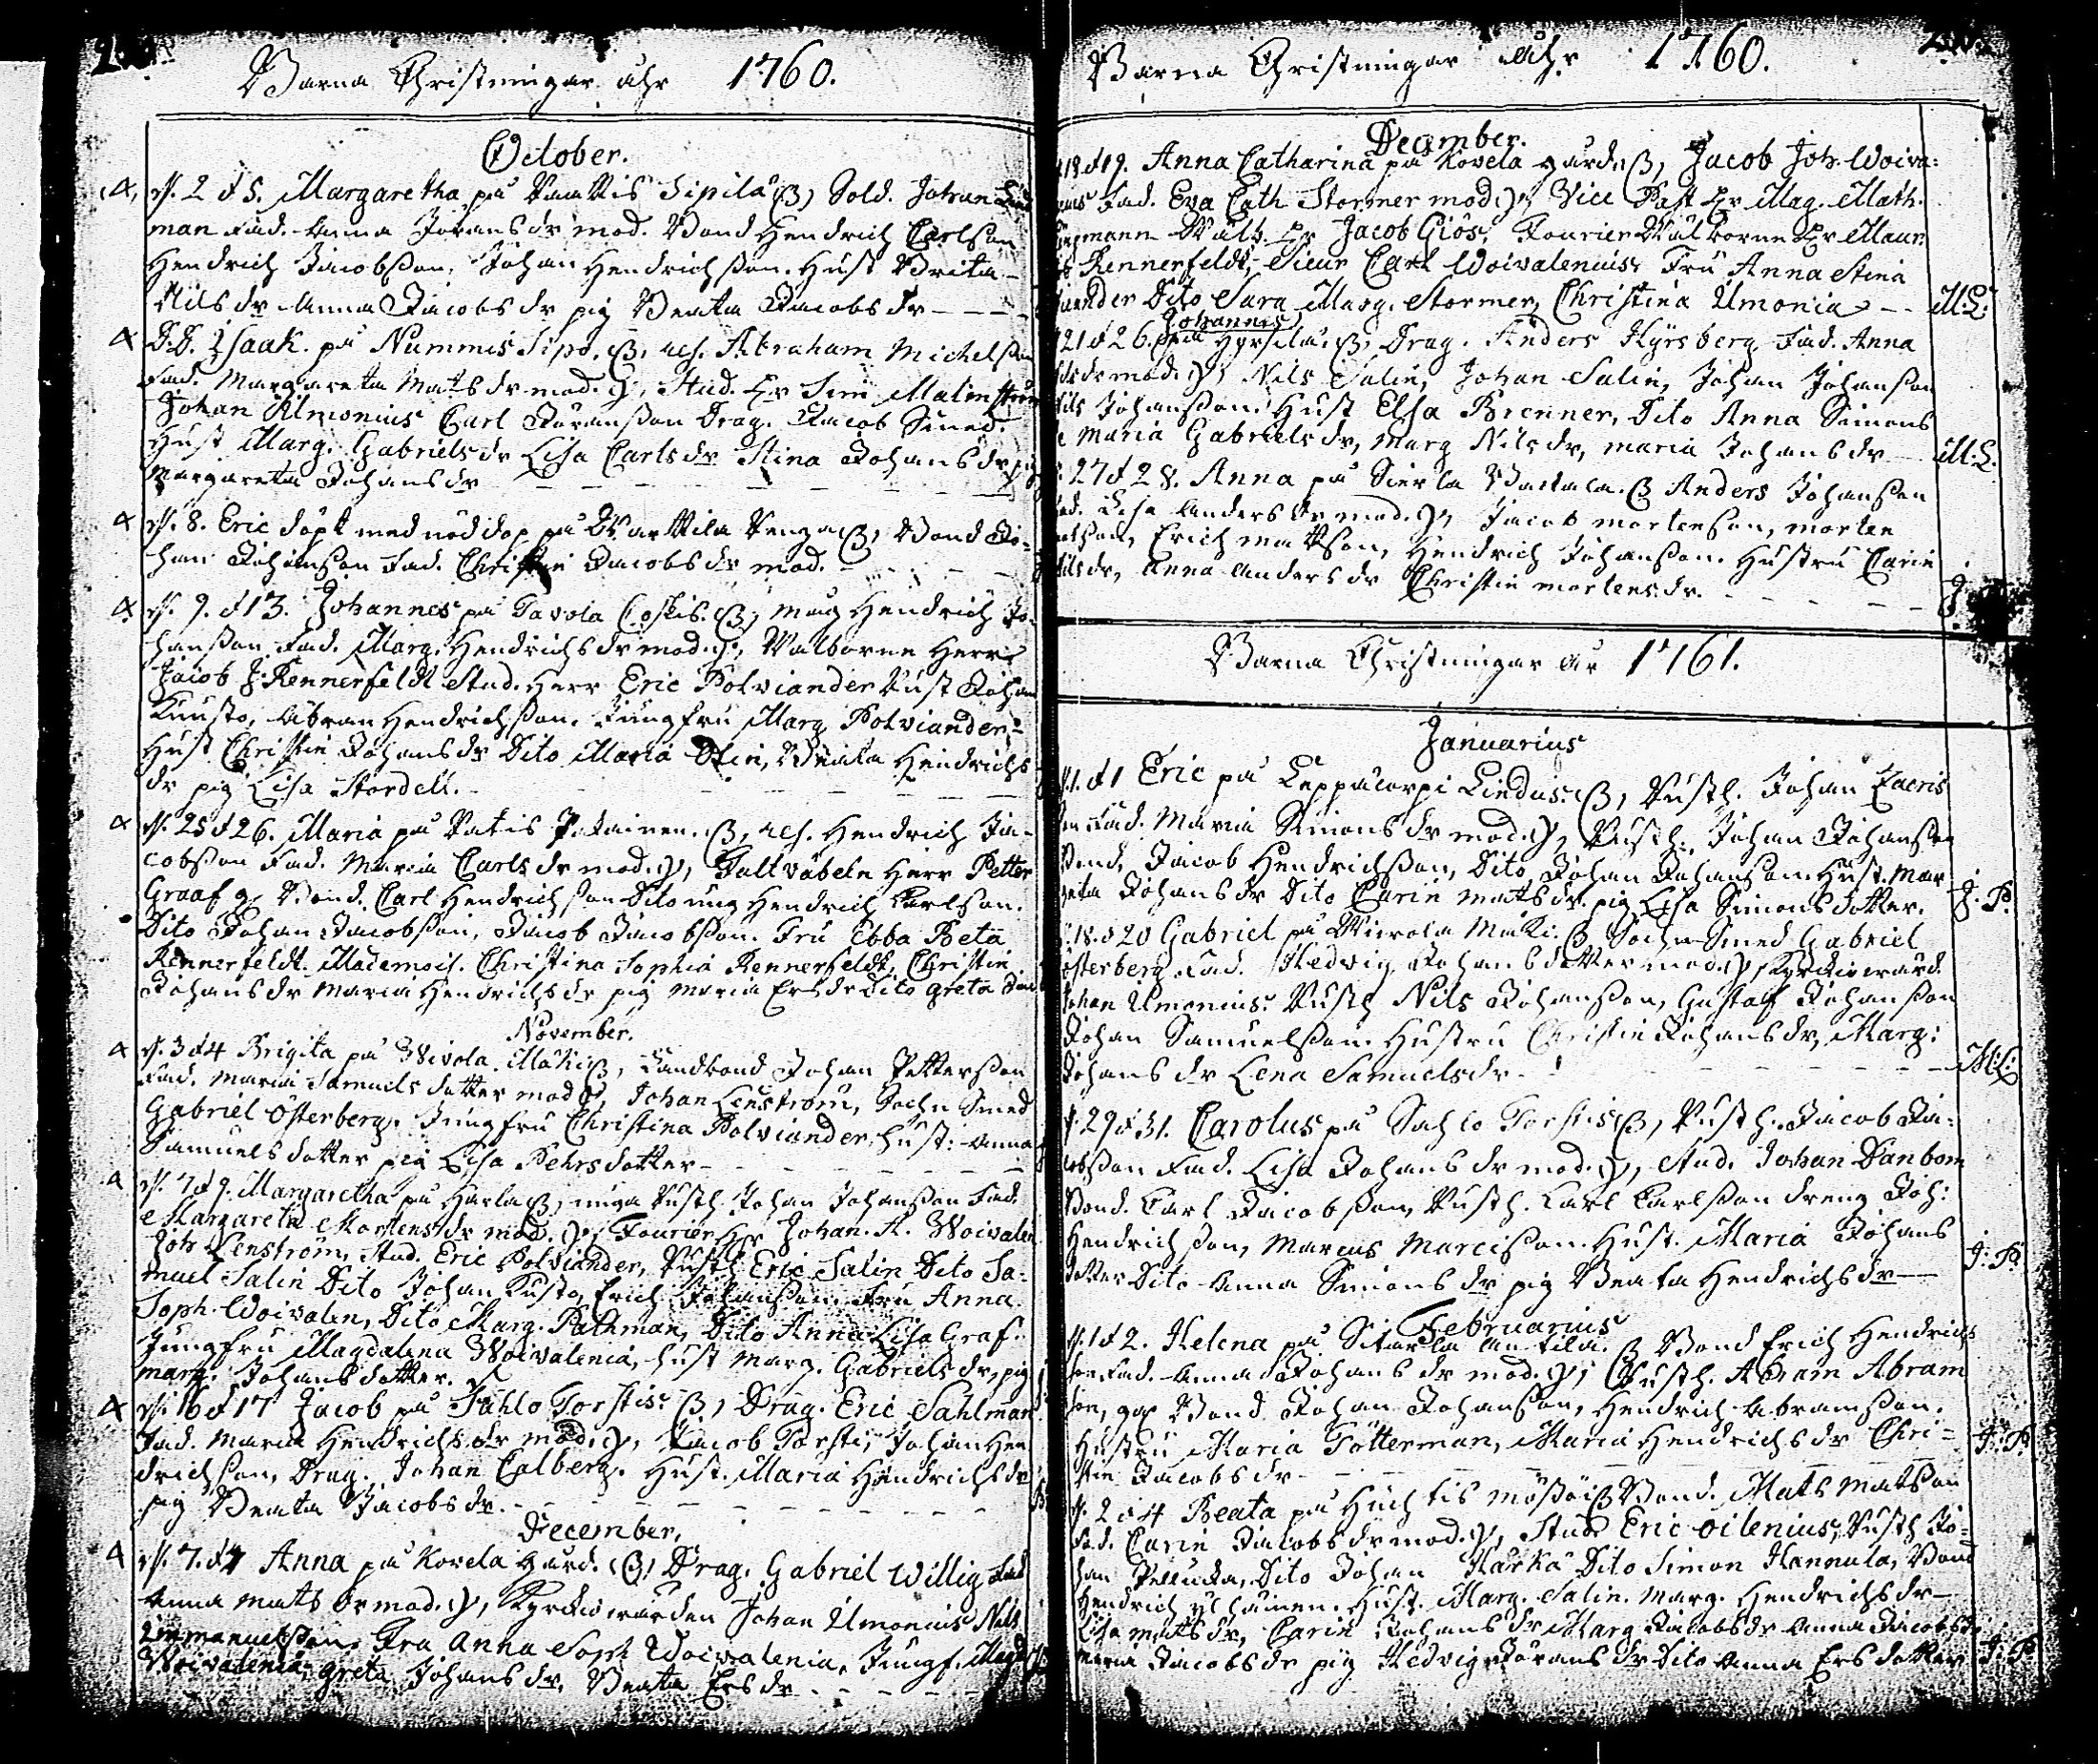 Barna Christningar åhr 1760.
October.
N. 2 d 5. Margaretha på Vanttis Sipilä (B) Sold. Johan Lind
man Fad. Anna Jöransdr mod. Bond Hendrich Carlson
Hendrich Jacobsson, Johan Hendrichsson. Hust Brita
Nilsdr Anna Jacobsdr pig Beata Jacobsdr
D.D. Isaak på Nummis Sipo. (B, Abraham Michelsson
Fad. Margareta Matsdr mod. Stud. Hr Sim Malmström
Johan Ulmonius Carl Göransson Drag. Jacob Smed.
Hust Marg. Gabrielsdr Lisa Carlsdr Stina Johansdr pig
Margareta Johansdr
N. 8. Eric döpt med nöddop på Varttila Penga (B, Bond Jo-
han Johansson Fad. Christin Jacobsdr mod.
N. 9. d 13. Johannes på Tavola Coskis. (B, Hendrich Jo-
hansson Fad. Marg. Hendrichsdr mod. Välborne Herr
Jacob J. Rennerfeldt Stud. Herr Eric Polviander Rust Johan
Kuusto, Abram Hendrichsson. Jungfru Marg Polviander,
Hust Christin Johansdr Dito Maria Beata Hendrichs
dr pig Lisa Stordell.
N. 25 d 26. Maria på Vatis (B, Hendrich Ja-
cobsson Fad. Maria Carlsdr mod. Faltväbeln Herr Petter
Graaf Bond. Carl Hendrichsson Dito ung Hendrich Carlson.
Dito Johan Jacobsson, Jacob Jacobsson. Fru Ebba Beta
Rennerfeldt. Mademois. Christina Sophia Rennerfeldt, Christin
Johansdr Maria Hendrichsdr pig Maria Ersdr Dito Greta
November.
N. 3 d 4 Brigita på Wivola Mäki (B, Landbond Johan Pettersson
Fad. Maria Samuelsdotter mod Johan Lenström, Sochn Smed
Gabriel Österberg. Jungfru Christina Polviander, hust. Anna
Samuelsdotter pig Lisa Pehrsdotter
N. 7 d 9. Margaretha på Harla (B, unga Rusth. Johan Johansson Fad.
Margareta Mortensdr mod. Fourier Hr Johan. A. Woivalen
Joh Lenström, Stud. Eric Polviander, Rusth Eric Salin Dito Sa-
muel Salin Dito Johan Kusto, Erich Johansson. Fru Anna
Soph. Woivalen, Dito Marg. Pathman, Dito Anna Lisa Graf.
Jungfru Magdalena Woivalenia, hust Marg. Gabrielsdr, pig
Marg. Johansdotter.
N. 16 d 17 Jacob på Sahlo Torstis (B, Drag. Eric Sahlman
Fad. Maria Hendrichsdr mod. Jacob Torsti, Johan Hen
drichson, Drag. Johan Calberg. Hust. Maria Hendrichsdr
pig Beata Jacobsdr.
December.
N. 7. d 7 Anna på Kovela gård. (B) Drag. Gabriel Willig Fad
Anna Matsdr mod. Kyrckiovärden Johan Ulmonius Nils
Immanuelsson. Fru Anna Soph Woivalenia, Jungf. Magd
Woivalenia, Greta Johansdr, Beata Ersdr
Barna Christningar Åhr 1760.
December.
18 d 19. Anna Catharina på Kovela gård (B, Jacob Joh. Woiva:
Fad. Eva Cath Stormer mod. Vice Past Hr Mag. Math.
Välb. Hr Jacob Giös, Fourier Välborne Hr Maur:
Rennerfeldt, Sieur Carl Woivalenius Fru Anna Stina
Dito Sara Marg. Stormer, Christina Ulmonia M.L.
21 d 26. Johannes på Hyrsilä (B, Drag. Anders Hyrsberg Fad. Anna
mod. Nils Salin, Johan Salin, Johan Johansson
Nils Johansson. Hust Elsa Brenner, Dito Anna Simons
Maria Gabrielsdr, Marg Nilsdr, Maria Johansdr M.L.
27 d 28. Anna på Sierla (B Anders Johansson
Fad. Lisa Andersdr mod. Jacob Mortenson, Morten
Erich Mattson, Hendrich Johansson. Hustru Carin
Nilsdr, Anna Andersdr Christin Mortensdr.
Barna Christningar År 1761.
Januarius
N. 1. d 1 Eric på Leppäcorpi Lindus. (B, Rusth. Johan Zacris
son Fad. Maria Simonsdr mod. Rusth. Johan Johansson
Bond. Jacob Hendrichsson, Dito Johan Johansson Hust. Mar
geta Johansdr Dito Carin Matsdr. pig Lisa Simonsdotter. J. P.
18. d 20 Gabriel på Wierola Mäki. (B Sochn Smed Gabriel
Österberg Fad. Hedwig Johansdotter mod. Kyrckiovärd
Johan Ulmonius. Rusth Nils Johansson, Gustaf Johansson
Johan Samuelsson. Hustru Christin Johansdr, Marg:
Johansdr Lena Samuelsdr M.L.
29 d 31. Carolus på Sahlo Torstis (B, Rusth. Jacob Ja-
cobsson Fad. Lisa Johansdr mod. Stud. Johan Danbom
Bond. Carl Jacobsson, Rusth. Carl Carlsson Dreng Joh:
Hendrichsson, Marcus Marcisson. Hust. Maria Johans
dotter Dito Anna Simonsdr pig Beata Hendrichsdr J. P.
Februarius
N. 1 d 2. Helena på Sitarla Anttila. (B Bond Erich Hendrich
son Fad. Anna Johansdr mod. Rusth. Abram Abram
son, Bond Johan Johansson, Hendrich Abramsson.
Hustru Maria Tötterman, Maria Hendrichsdr Chri-
stin Jacobsdr J. P.
N. 2 d 4 Beata på Huchtis (B Bond. Mats Matson
Fad. Carin Jacobsdr mod. Stud Eric Oilenius, Rusth Jo-
han Pellucka, Dito Johan Härkä Dito Simon Hannula, Bond
Hendrich Hust. Marg. Salin. Marg. Hendrichsdr
Lisa Matsdr, Carin Johansdr Marg Jacobsdr Anna Jacobsdr
Maria Jacobsdr pig Hedvig Göransdr Dito Anna Ersdotter J. P.